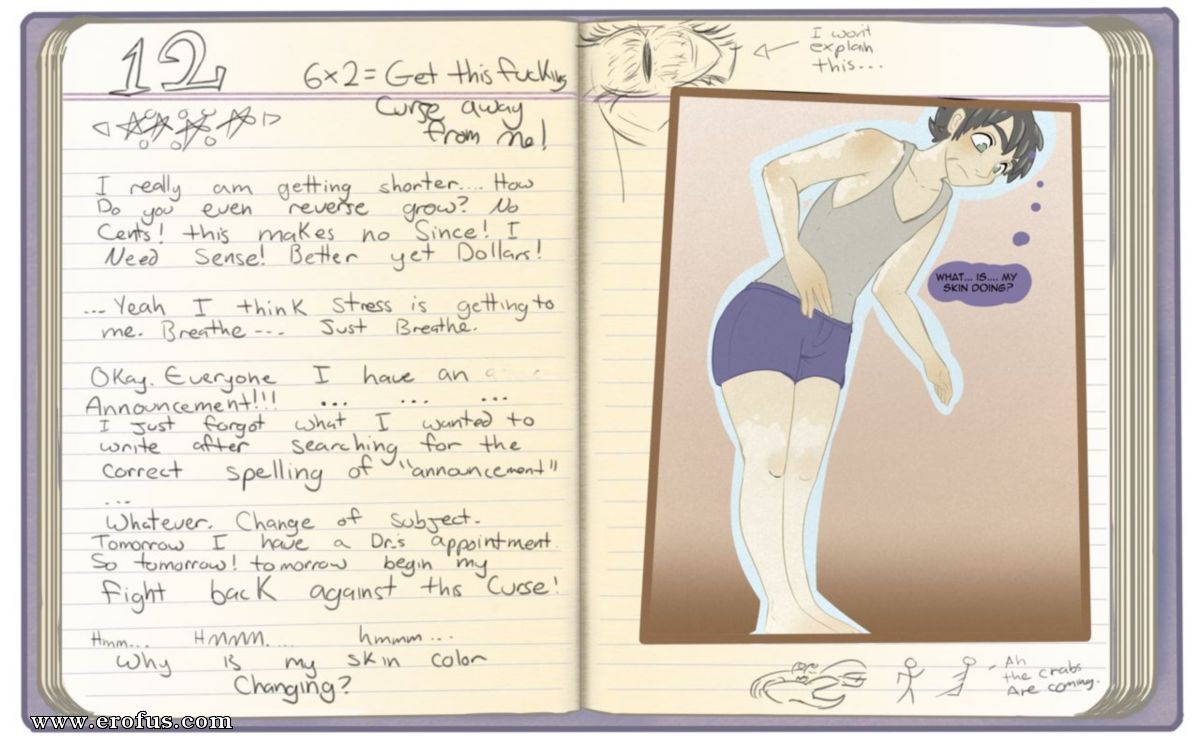 12
6x2= Get this fucking
Curse away
from me!
I really am getting shorter.... How
Do you even reverse grow? No
Cents! this makes no Since! I
Need Sense! Better yet Dollars!
... Yeah I think Stress is getting to
me. Breathe --- Just Breathe.
Okay. Everyone I have an
Announcement!!! ... ... ...
I just forgot what I wanted to
write after searching for the
correct spelling of "announcement"
...
Whatever. Change of subject.
Tomorrow I have a Dr.s appointment.
So tomorrow! tomorrow begin my
fight back against this Curse!
Hmm... Hmmm.... hmmm...
Why is my skin color
Changing?
I won't
explain
this...
WHAT... IS.... MY
SKIN DOING?
Ah
the crabs
Are coming.
www.erofus.com